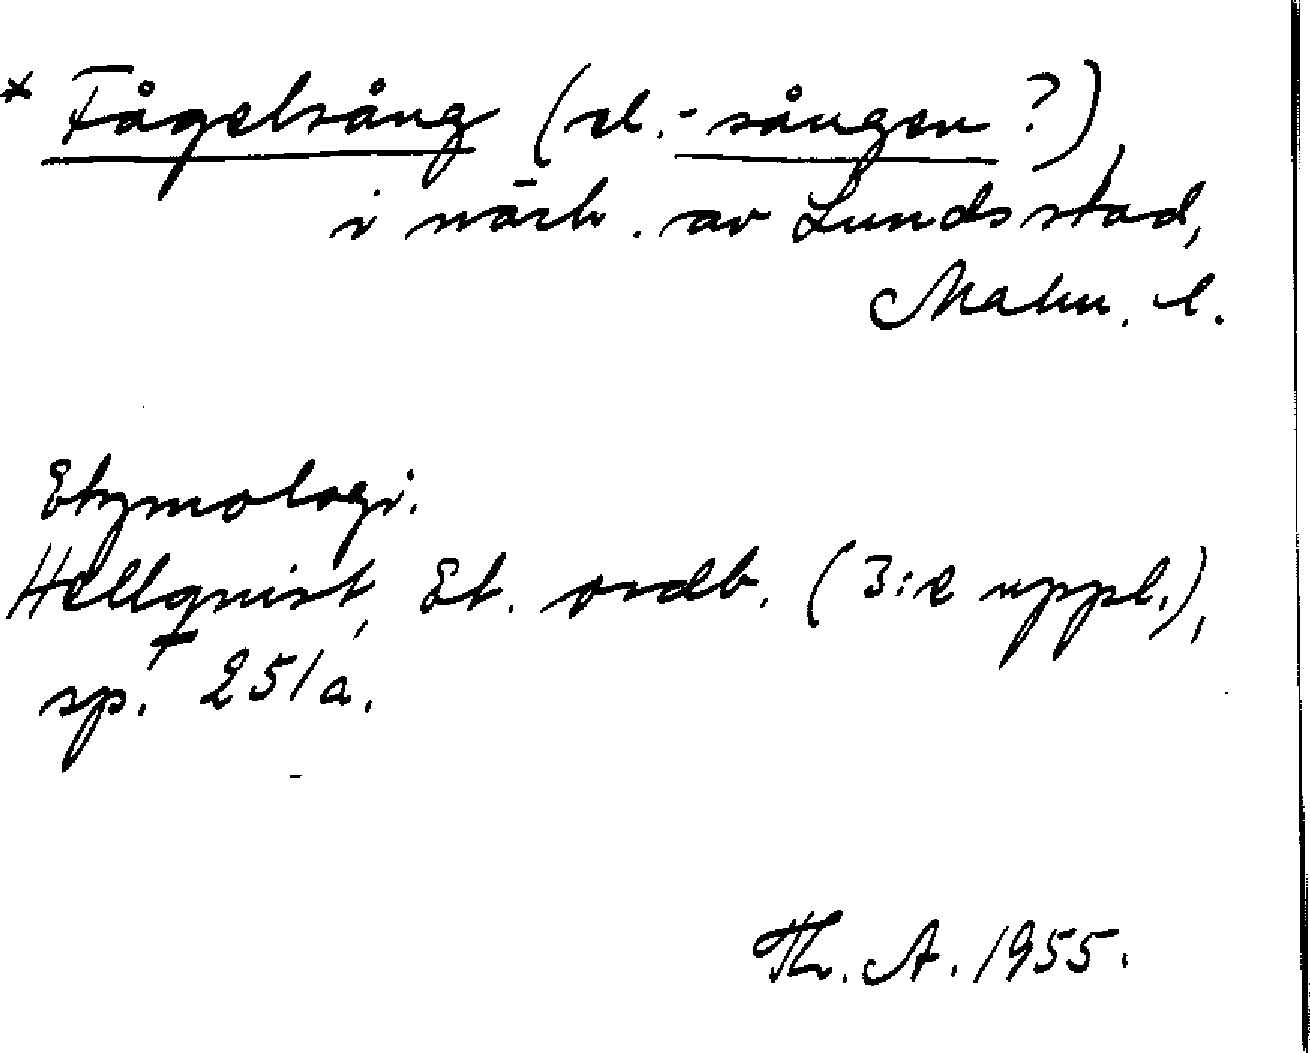 * Fågelsång (el. -sången?),
i närh. av Lunds stad,
Malm. l.
Etymologi.
Hellquist, Et. ordb. (3:e uppl.),
sp. 251 a.
Th. A. 1955.